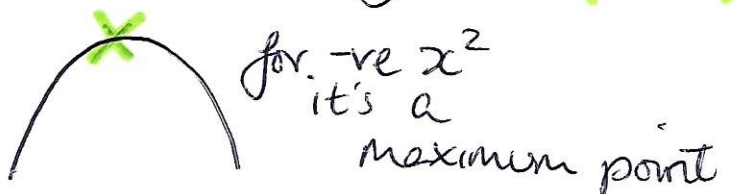 for -ve x²
it's a
maximum point